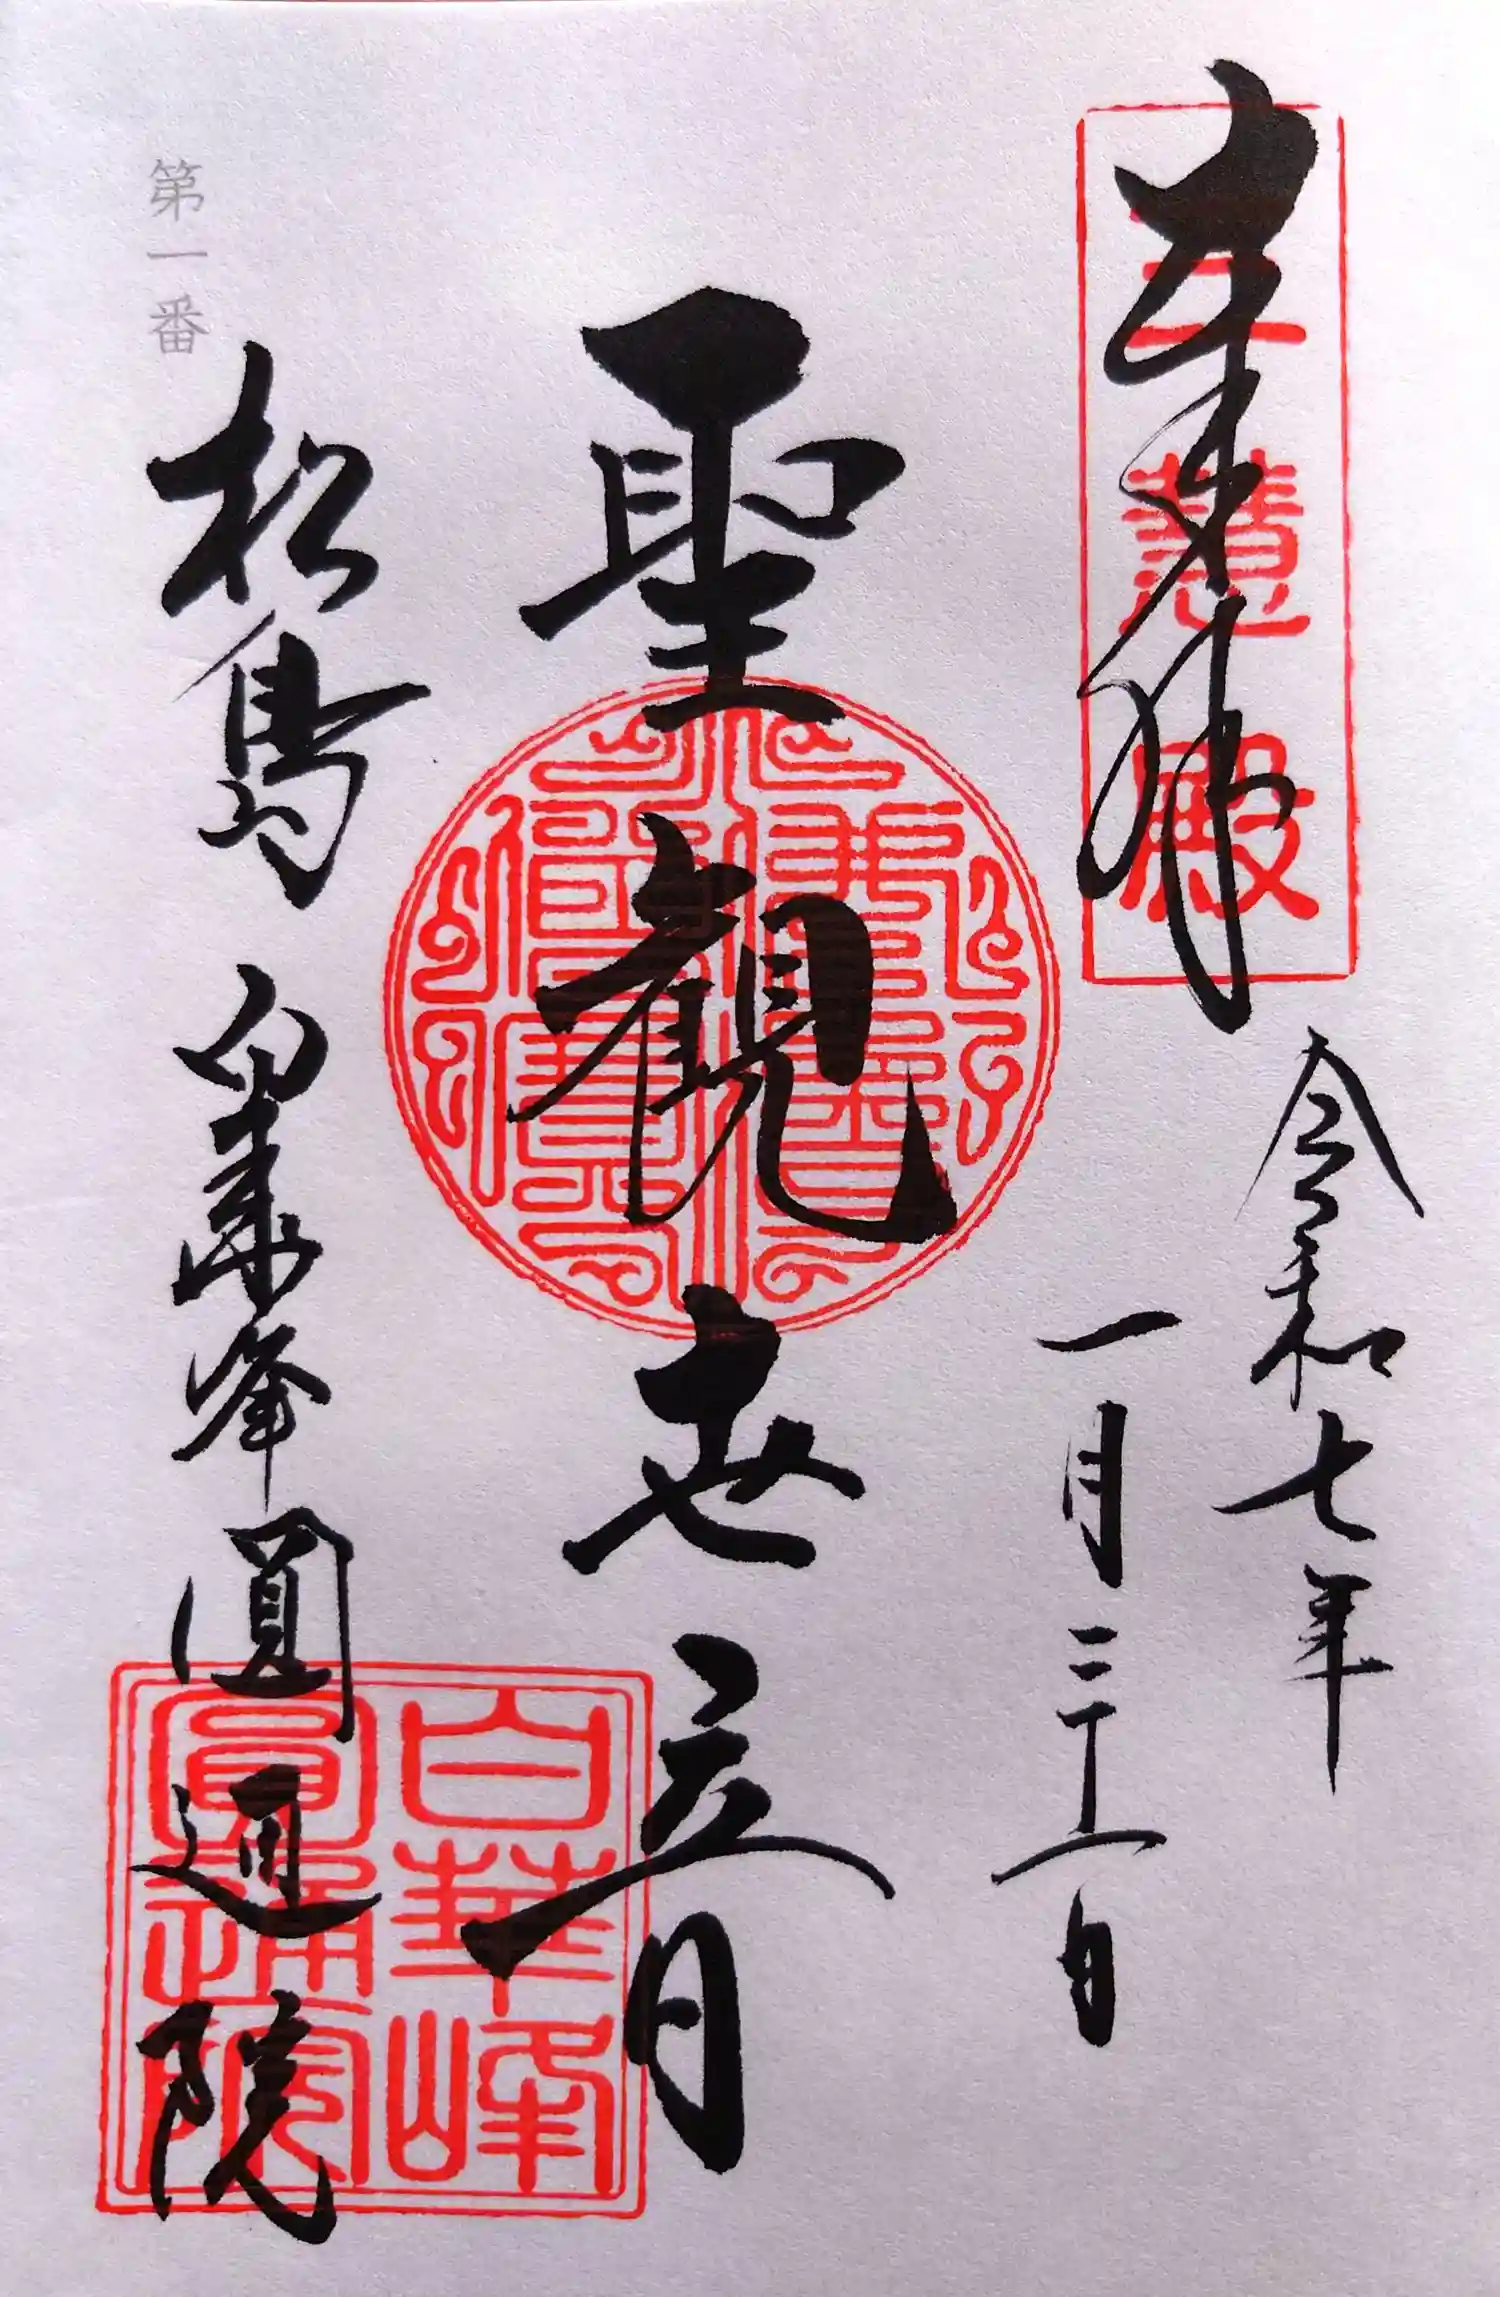 奉拝
三慧殿
令和七年
一月三十一日
聖観世音
第一番
松島 白華峰 圓通院
白華峰
圓通院